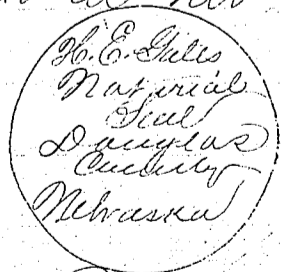 H. E. Giles
Notarial
Seal
Douglas
County
Nebraska